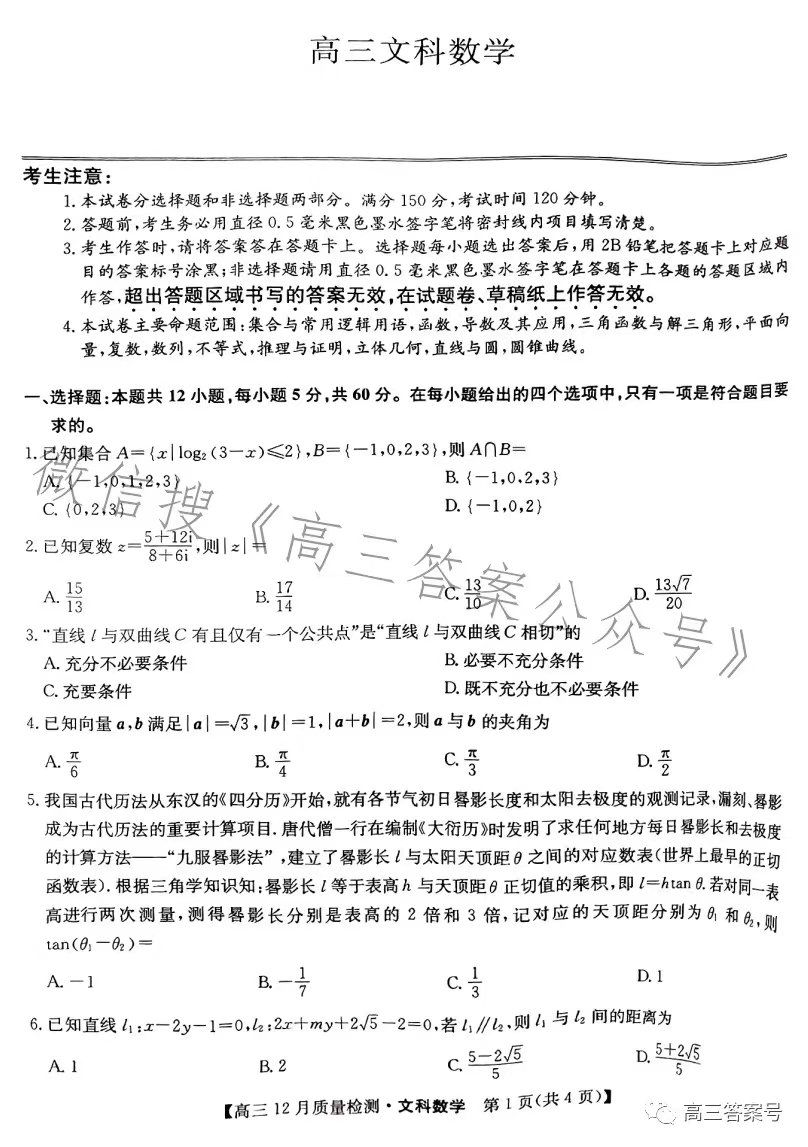 高三文科数学
考生注意:
1. 本试卷分选择题和非选择题两部分。满分 150 分,考试时间 120 分钟。
2. 答题前,考生务必用直径 0.5 毫米黑色墨水签字笔将密封线内项目填写清楚。
3. 考生作答时,请将答案答在答题卡上。选择题每小题选出答案后,用 2B 铅笔把答题卡上对应题
目的答案标号涂黑;非选择题请用直径 0.5 毫米黑色墨水签字笔在答题卡上各题的答题区域内
作答,超出答题区域书写的答案无效,在试题卷、草稿纸上作答无效。
4. 本试卷主要命题范围:集合与常用逻辑用语,函数,导数及其应用,三角函数与解三角形,平面向
量,复数,数列,不等式,推理与证明,立体几何,直线与圆,圆锥曲线。
一、选择题:本题共 12 小题,每小题 5 分,共 60 分。在每小题给出的四个选项中,只有一项是符合题目要
求的。
1. 已知集合 A={x|log₂(3-x)≤2},B={-1,0,2,3},则 A∩B=
A. {-1,0,1,2,3} B. {-1,0,2,3}
C. {0,2,3} D. {-1,0,2}
2. 已知复数 z=(5+12i)/(8+6i),则|z|=
A. 15/13 B. 17/14 C. 13/10 D. 13√7/20
3. “直线 l 与双曲线 C 有且仅有一个公共点”是“直线 l 与双曲线 C 相切”的
A. 充分不必要条件 B. 必要不充分条件
C. 充要条件 D. 既不充分也不必要条件
4. 已知向量 a,b 满足|a|=√3,|b|=1,|a+b|=2,则 a 与 b 的夹角为
A. π/6 B. π/4 C. π/3 D. π/2
5. 我国古代历法从东汉的《四分历》开始,就有各节气初日晷影长度和太阳去极度的观测记录,漏刻、晷影
成为古代历法的重要计算项目. 唐代僧一行在编制《大衍历》时发明了求任何地方每日晷影长和去极度
的计算方法——“九服晷影法”,建立了晷影长 l 与太阳天顶距 θ 之间的对应数表(世界上最早的正切
函数表). 根据三角学知识知:晷影长 l 等于表高 h 与天顶距 θ 正切值的乘积,即 l=htan θ. 若对同一表
高进行两次测量,测得晷影长分别是表高的 2 倍和 3 倍,记对应的天顶距分别为 θ₁ 和 θ₂,则
tan(θ₁-θ₂)=
A. -1 B. -1/7 C. 1/3 D. 1
6. 已知直线 l₁:x-2y-1=0,l₂:2x+my+2√5-2=0,若 l₁∥l₂,则 l₁ 与 l₂ 间的距离为
A. 1 B. 2 C. (5-2√5)/5 D. (5+2√5)/5
【高三 12 月质量检测·文科数学 第 1 页(共 4 页)】
微信搜《高三答案公众号》
高三答案号